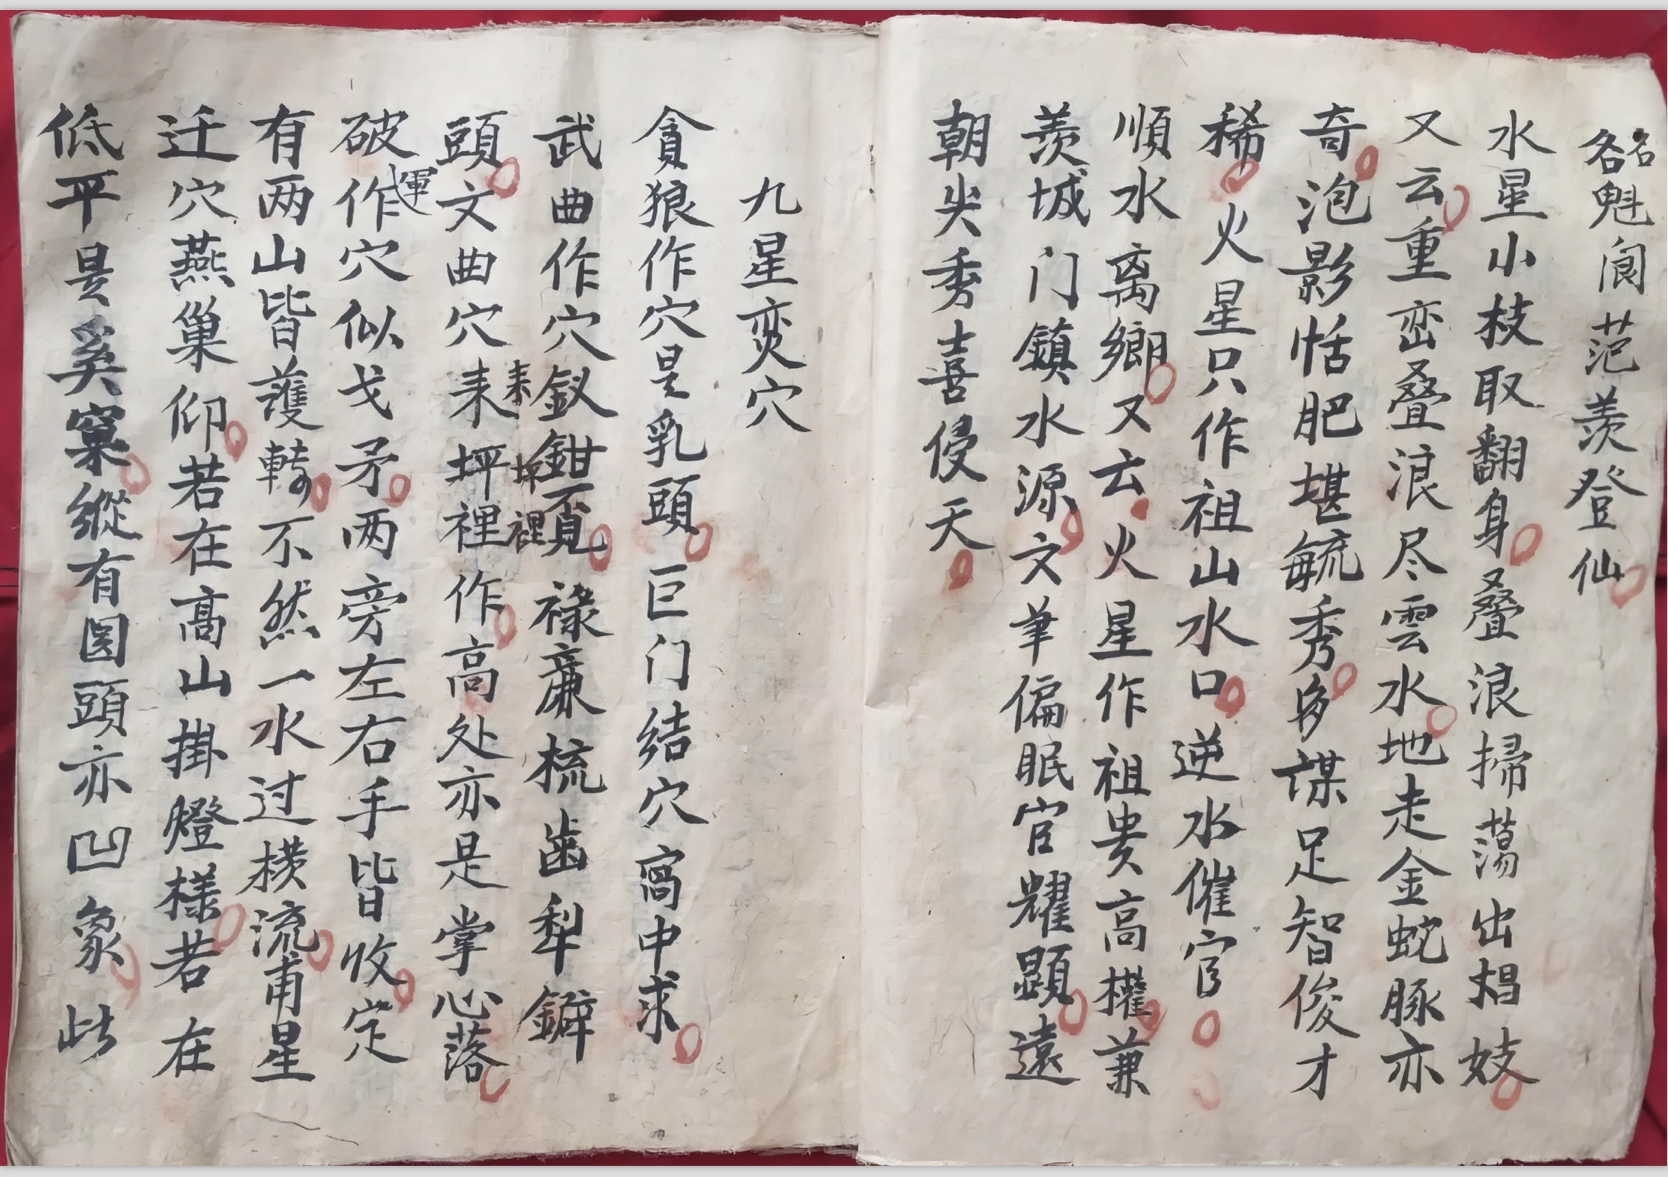 各名魁阆范羡登仙
水星小枝取翻身叠浪掃蕩出娼妓
又云重峦叠浪尽雲水地走金蛇豚亦
奇泡影恬肥堪毓秀多谋足智俊才
稀火星只作祖山水口逆水催官
順水离鄉又云火星作祖贵高權兼
羡城门鎮水源文笔偏眠官耀顕遠
朝尖秀喜侵天
九星变穴
貪狼作穴是乳頭巨门结穴窩中求
武曲作穴釵鉗覓禄廉梳齒犁鐴
頭文曲穴耒坪裡作高处亦是掌心落
耒坪裡
破作穴似戈矛两旁左右手皆收定
軍
有两山皆護轉不然一水过横流甫星
迁穴燕巢仰若在高山掛燈様若在
低平是奚窠縱有圆頭亦凹象此